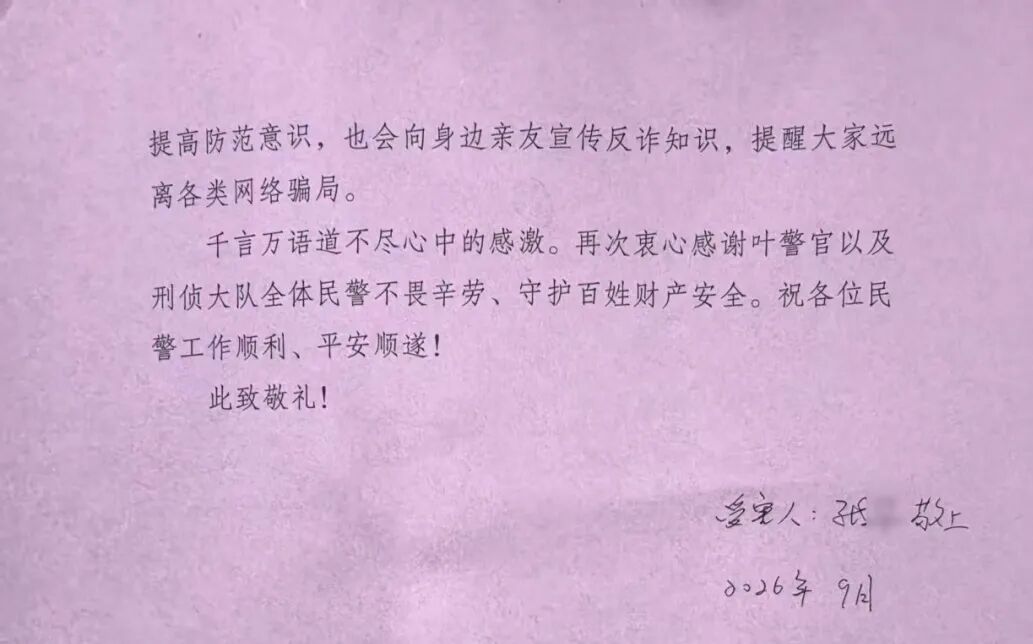 提高防范意识，也会向身边亲友宣传反诈知识，提醒大家远
离各类网络骗局。
千言万语道不尽心中的感激。再次衷心感谢叶警官以及
刑侦大队全体民警不畏辛劳、守护百姓财产安全。祝各位民
警工作顺利、平安顺遂！
此致敬礼！
受害人：张 敬上
2026年 9月